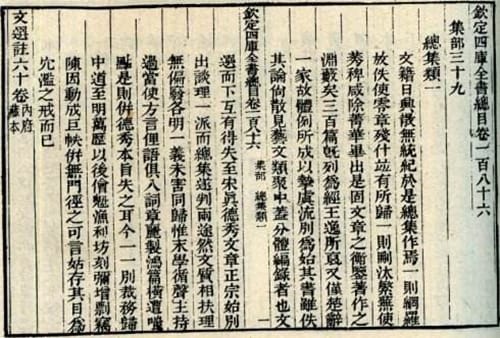 欽定四庫全書總目卷一百八十六
集部三十九
總集類一
文籍日興散無統紀於是總集作焉一則網羅
放佚使零章殘什並有所歸一則刪汰繁蕪使
莠稗咸除菁華畢出是固文章之衡鑒著作之
淵藪矣三百篇既列為經王逸所裒又僅楚辭
一家故體例所成以摯虞流別為始其書雖佚
其論尚散見藝文類聚中蓋分體編錄者也文
欽定四庫全書總目卷一百八十六 集部 總集類一 一
選而下互有得失至宋真德秀文章正宗始別
出談理一派而總集遂判兩途然文質相扶理
無偏廢各明一義未害同歸惟末學循聲主持
過當使方言俚語俱入詞章麗製鴻篇橫遭嗤
點是則併德秀本旨失之耳今一一別裁務歸
中道至明萬歷以後儈魁漁利坊刻彌增剽竊
陳因動成巨帙併無門徑之可言姑存其目為
冗濫之戒而已
文選註六十卷內府藏本